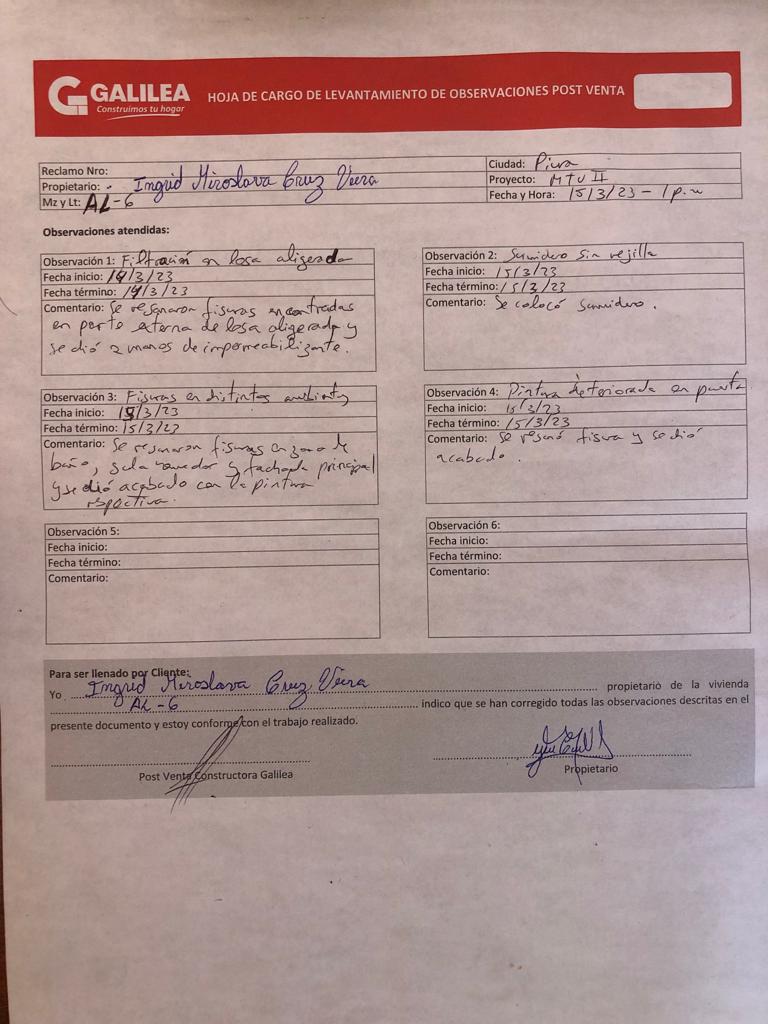 GALILEA
Construimos tu hogar
HOJA DE CARGO DE LEVANTAMIENTO DE OBSERVACIONES POST VENTA
Reclamo Nro:
Propietario: - Ingrid Miroslava Cruz Viera
Mz y Lt: AL-6
Ciudad: Piura
Proyecto: MTV II
Fecha y Hora: 15/3/23 - 1 p.m
Observaciones atendidas:
Observación 1: Filtración en losa aligerada
Fecha inicio: 14/3/23
Fecha término: 14/3/23
Comentario: Se resanaron fisuras encontradas
en parte externa de losa aligerada y
se dió 2 manos de impermeabilizante.
Observación 2: Sumidero sin rejilla
Fecha inicio: 15/3/23
Fecha término: 15/3/23
Comentario: Se colocó sumidero.
Observación 3: Fisuras en distintos ambientes
Fecha inicio: 15/3/23
Fecha término: 15/3/23
Comentario: Se resanaron fisuras en zona de
baño, sala comedor y fachada principal
y se dió acabado con la pintura
respectiva.
Observación 4: Pintura deteriorada en puerta
Fecha inicio: 15/3/23
Fecha término: 15/3/23
Comentario: Se resanó fisura y se dió
acabado.
Observación 5:
Fecha inicio:
Fecha término:
Comentario:
Observación 6:
Fecha inicio:
Fecha término:
Comentario:
Para ser llenado por Cliente:
Yo Ingrid Miroslava Cruz Viera propietario de la vivienda
AL-6 indico que se han corregido todas las observaciones descritas en el
presente documento y estoy conforme con el trabajo realizado.
Post Venta Constructora Galilea
Propietario